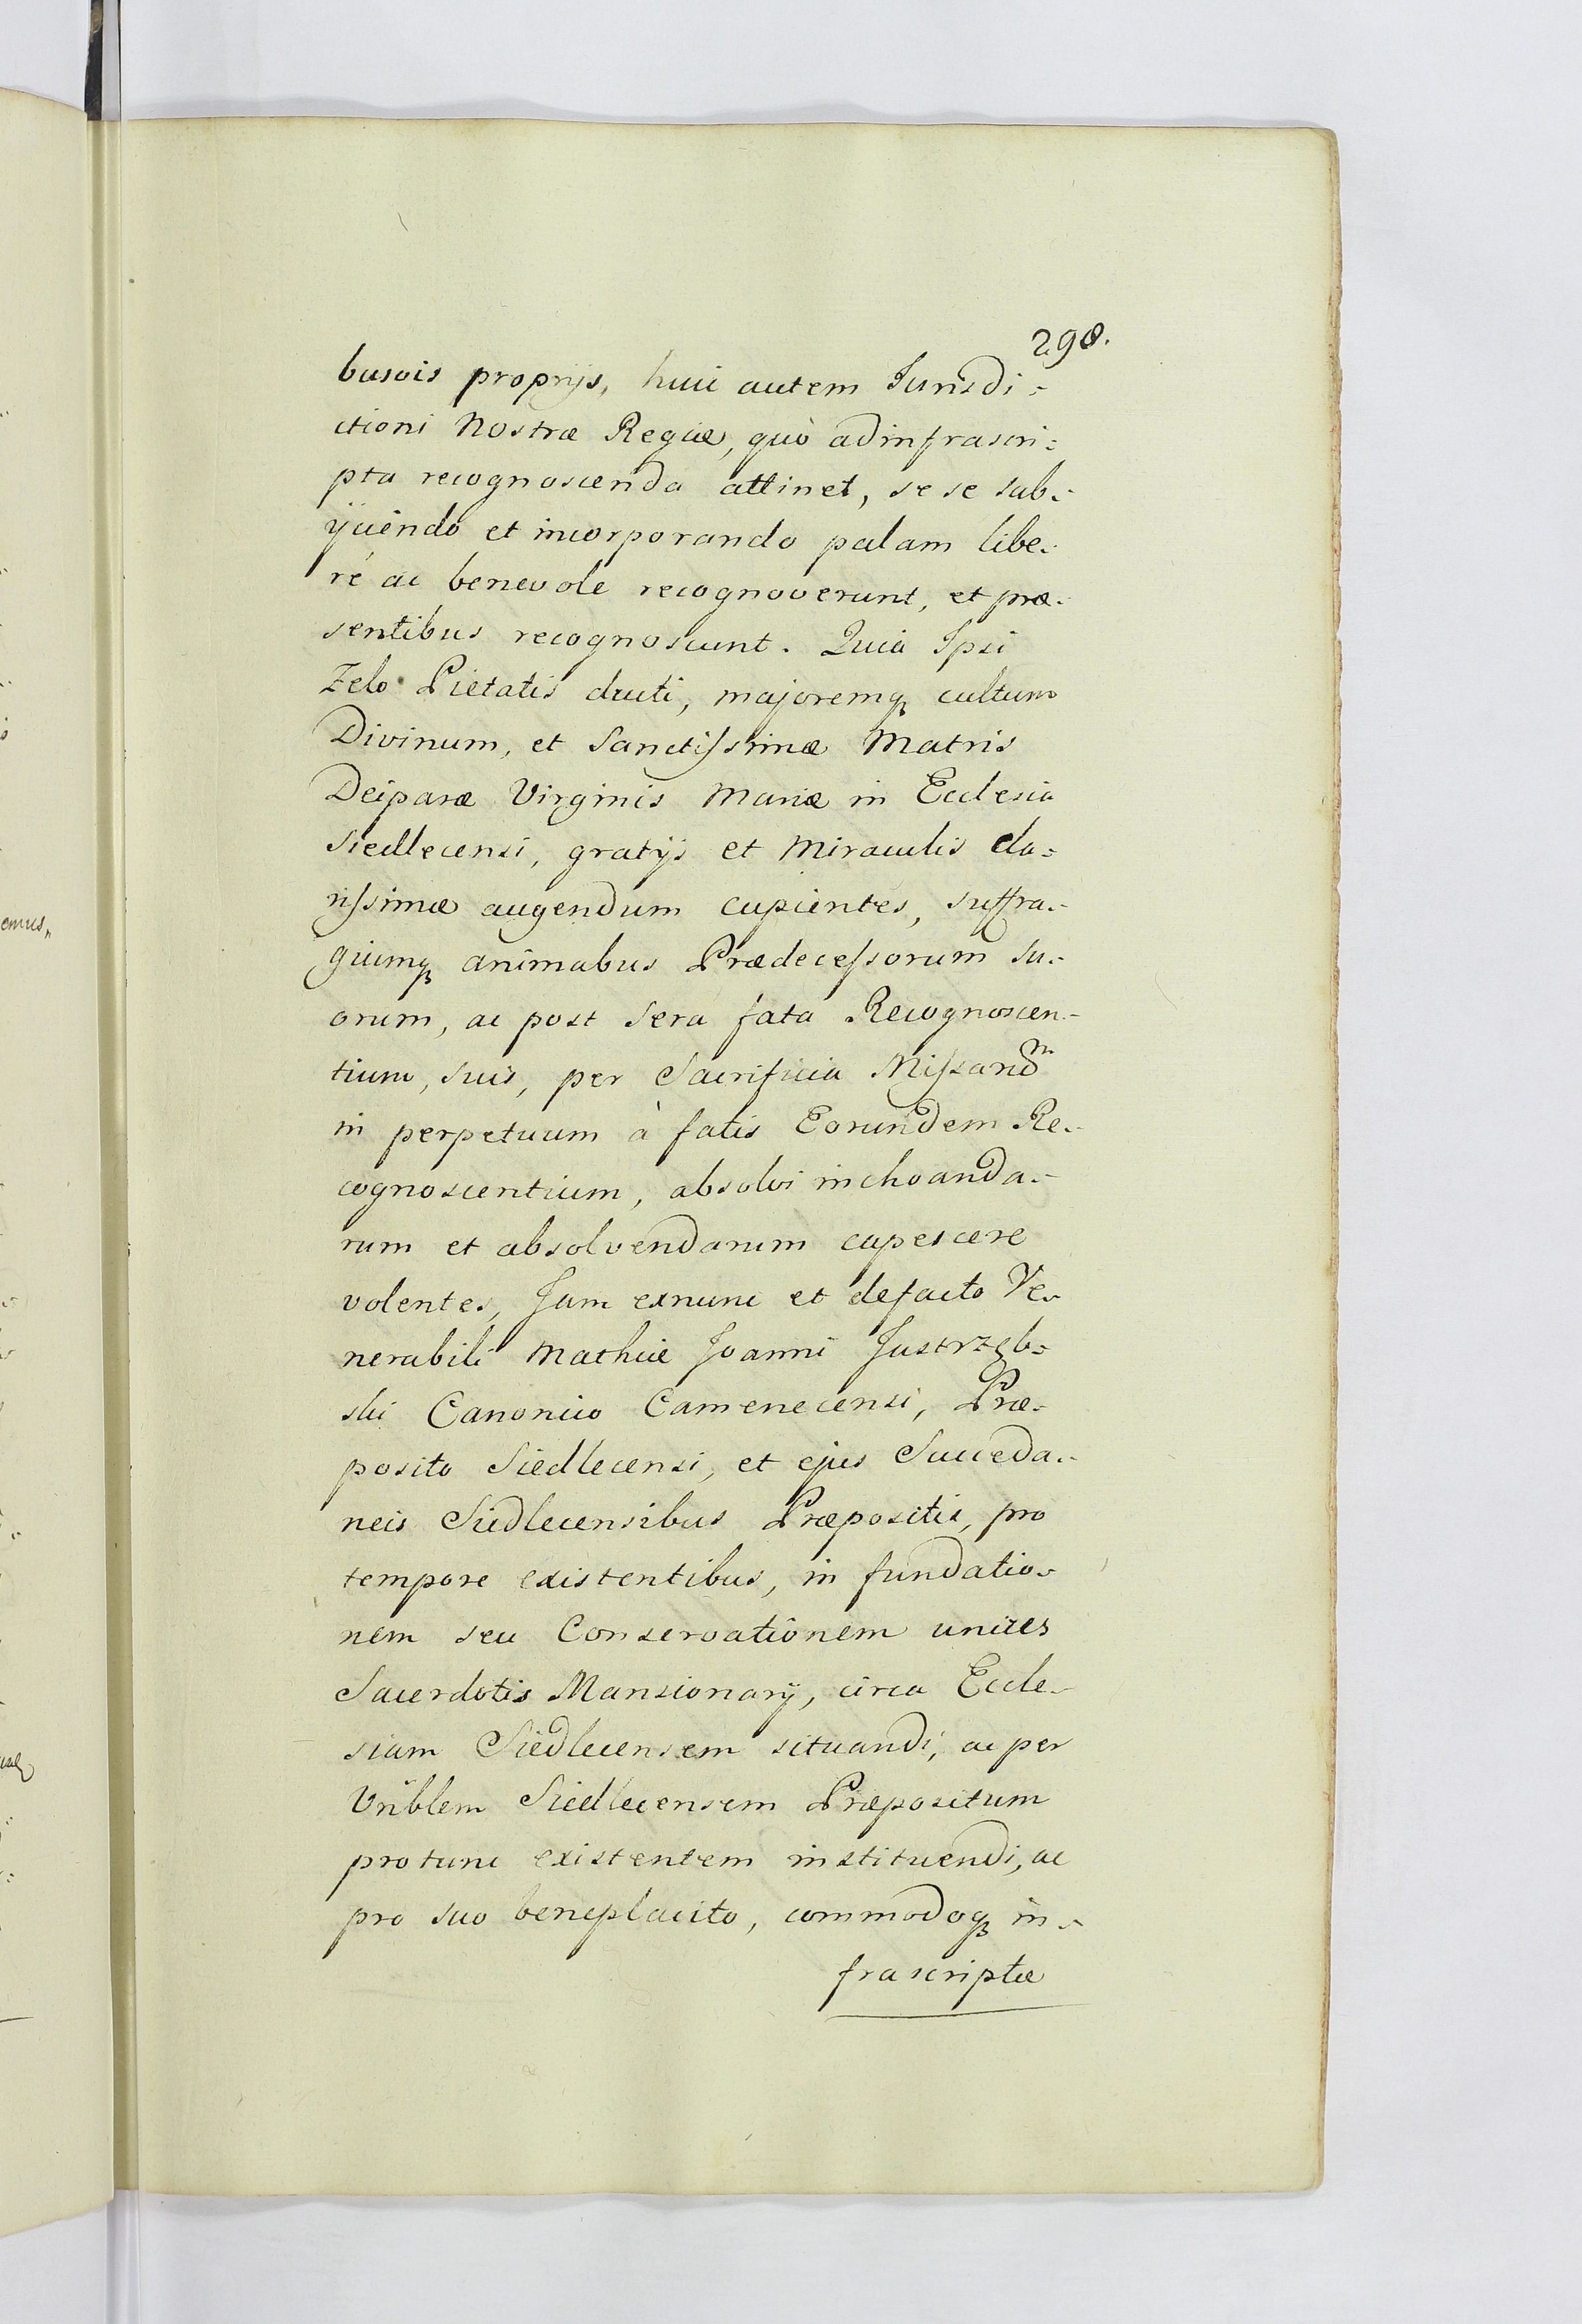 298.
busvis proprijs, huic autem Jurisdi=
ctioni Nostræ Regiæ, quò adinfrascri=
pta recognoscenda attinet, se se sub=
ÿciendo et incorporando palam libe=
ré ac benevole recognoverunt, et præ=
sentibus recognoscunt. Quia Ipsi
Zelo Pietatis ducti, majoremq cultum
Divinum, et Sanctissimæ Matris
Deiparæ Virginis Mariæ in Ecclesia
Siedlecensi, gratijs et Miraculis cla=
rissimæ augendum cupientes, suffra=
giumq animabus Prædecessorum su=
orum, ac post sera fata Recognoscen=
tium, suis, per Sacrificia Missarũm
in perpetuum à fatis Eorundem Re=
cognoscentium, absolvi inchoanda=
rum et absolvendarum capescere
volentes, Jam exnunc et defacto Ve=
nerabili Mathiæ Joanni Jastrzęb=
ski Canonico Camenecensi, Præ=
posito Siedlecensi, et ejus Succeda=
neis Siedlecensibus Præpositis, pro
tempore existentibus, in fundatio=
nem seu Conservationem unius
Sacerdotis Mansionarij, circa Eccle=
siam Siedlecensem situandi, ac per
Vnblem Siedlecensem Præpositum
protunc existentem instituendi, ac
pro suo beneplacito, commodoq in=
frascriptæ